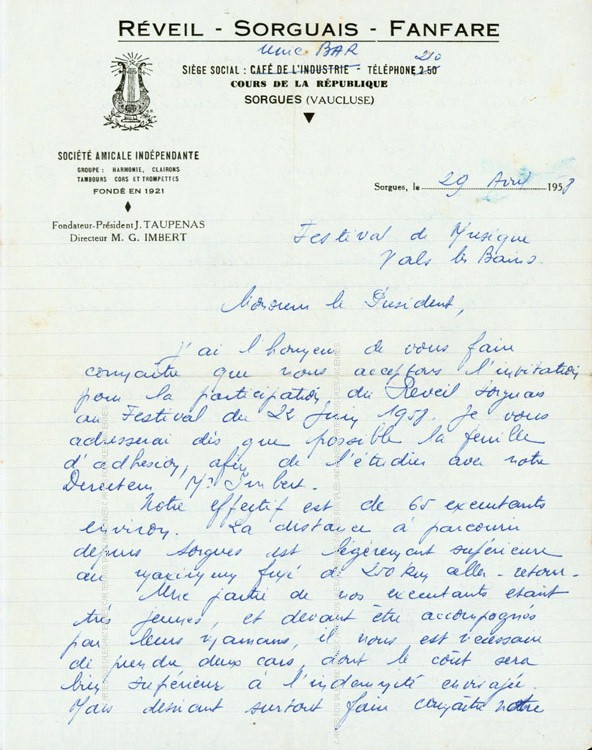 RÉVEIL - SORGUAIS - FANFARE
Unic BAR 210
SIÈGE SOCIAL : CAFÉ DE L'INDUSTRIE - TÉLÉPHONE 2.50
COURS DE LA RÉPUBLIQUE
SORGUES (VAUCLUSE)
SOCIÉTÉ AMICALE INDÉPENDANTE
GROUPE : HARMONIE, CLAIRONS
TAMBOURS CORS ET TROMPETTES
FONDÉ EN 1921
Sorgues, le 29 Avril 1958
Fondateur-Président J. TAUPENAS
Directeur M. G. IMBERT
Festival de Musique
Vals les Bains.
Monsieur le Président,
J'ai l'honneur de vous faire
connaître que nous acceptons l'invitation
pour la participation du Réveil Sorguais
au Festival du 22 Juin 1958. Je vous
adresserai dès que possible la feuille
d'adhésion, afin de l'étudier avec notre
Directeur, Mr Imbert.
Notre effectif est de 65 exécutants
environ. La distance à parcourir
depuis Sorgues est légèrement supérieure
au maximum fixé de 250 km aller-retour.
Une partie de nos exécutants étant
très jeunes, et devant être accompagnés
par leurs mamans, il nous est nécessaire
de prendre deux cars, dont le coût sera
bien supérieur à l'indemnité envisagée
Mais désirant surtout faire connaître notre